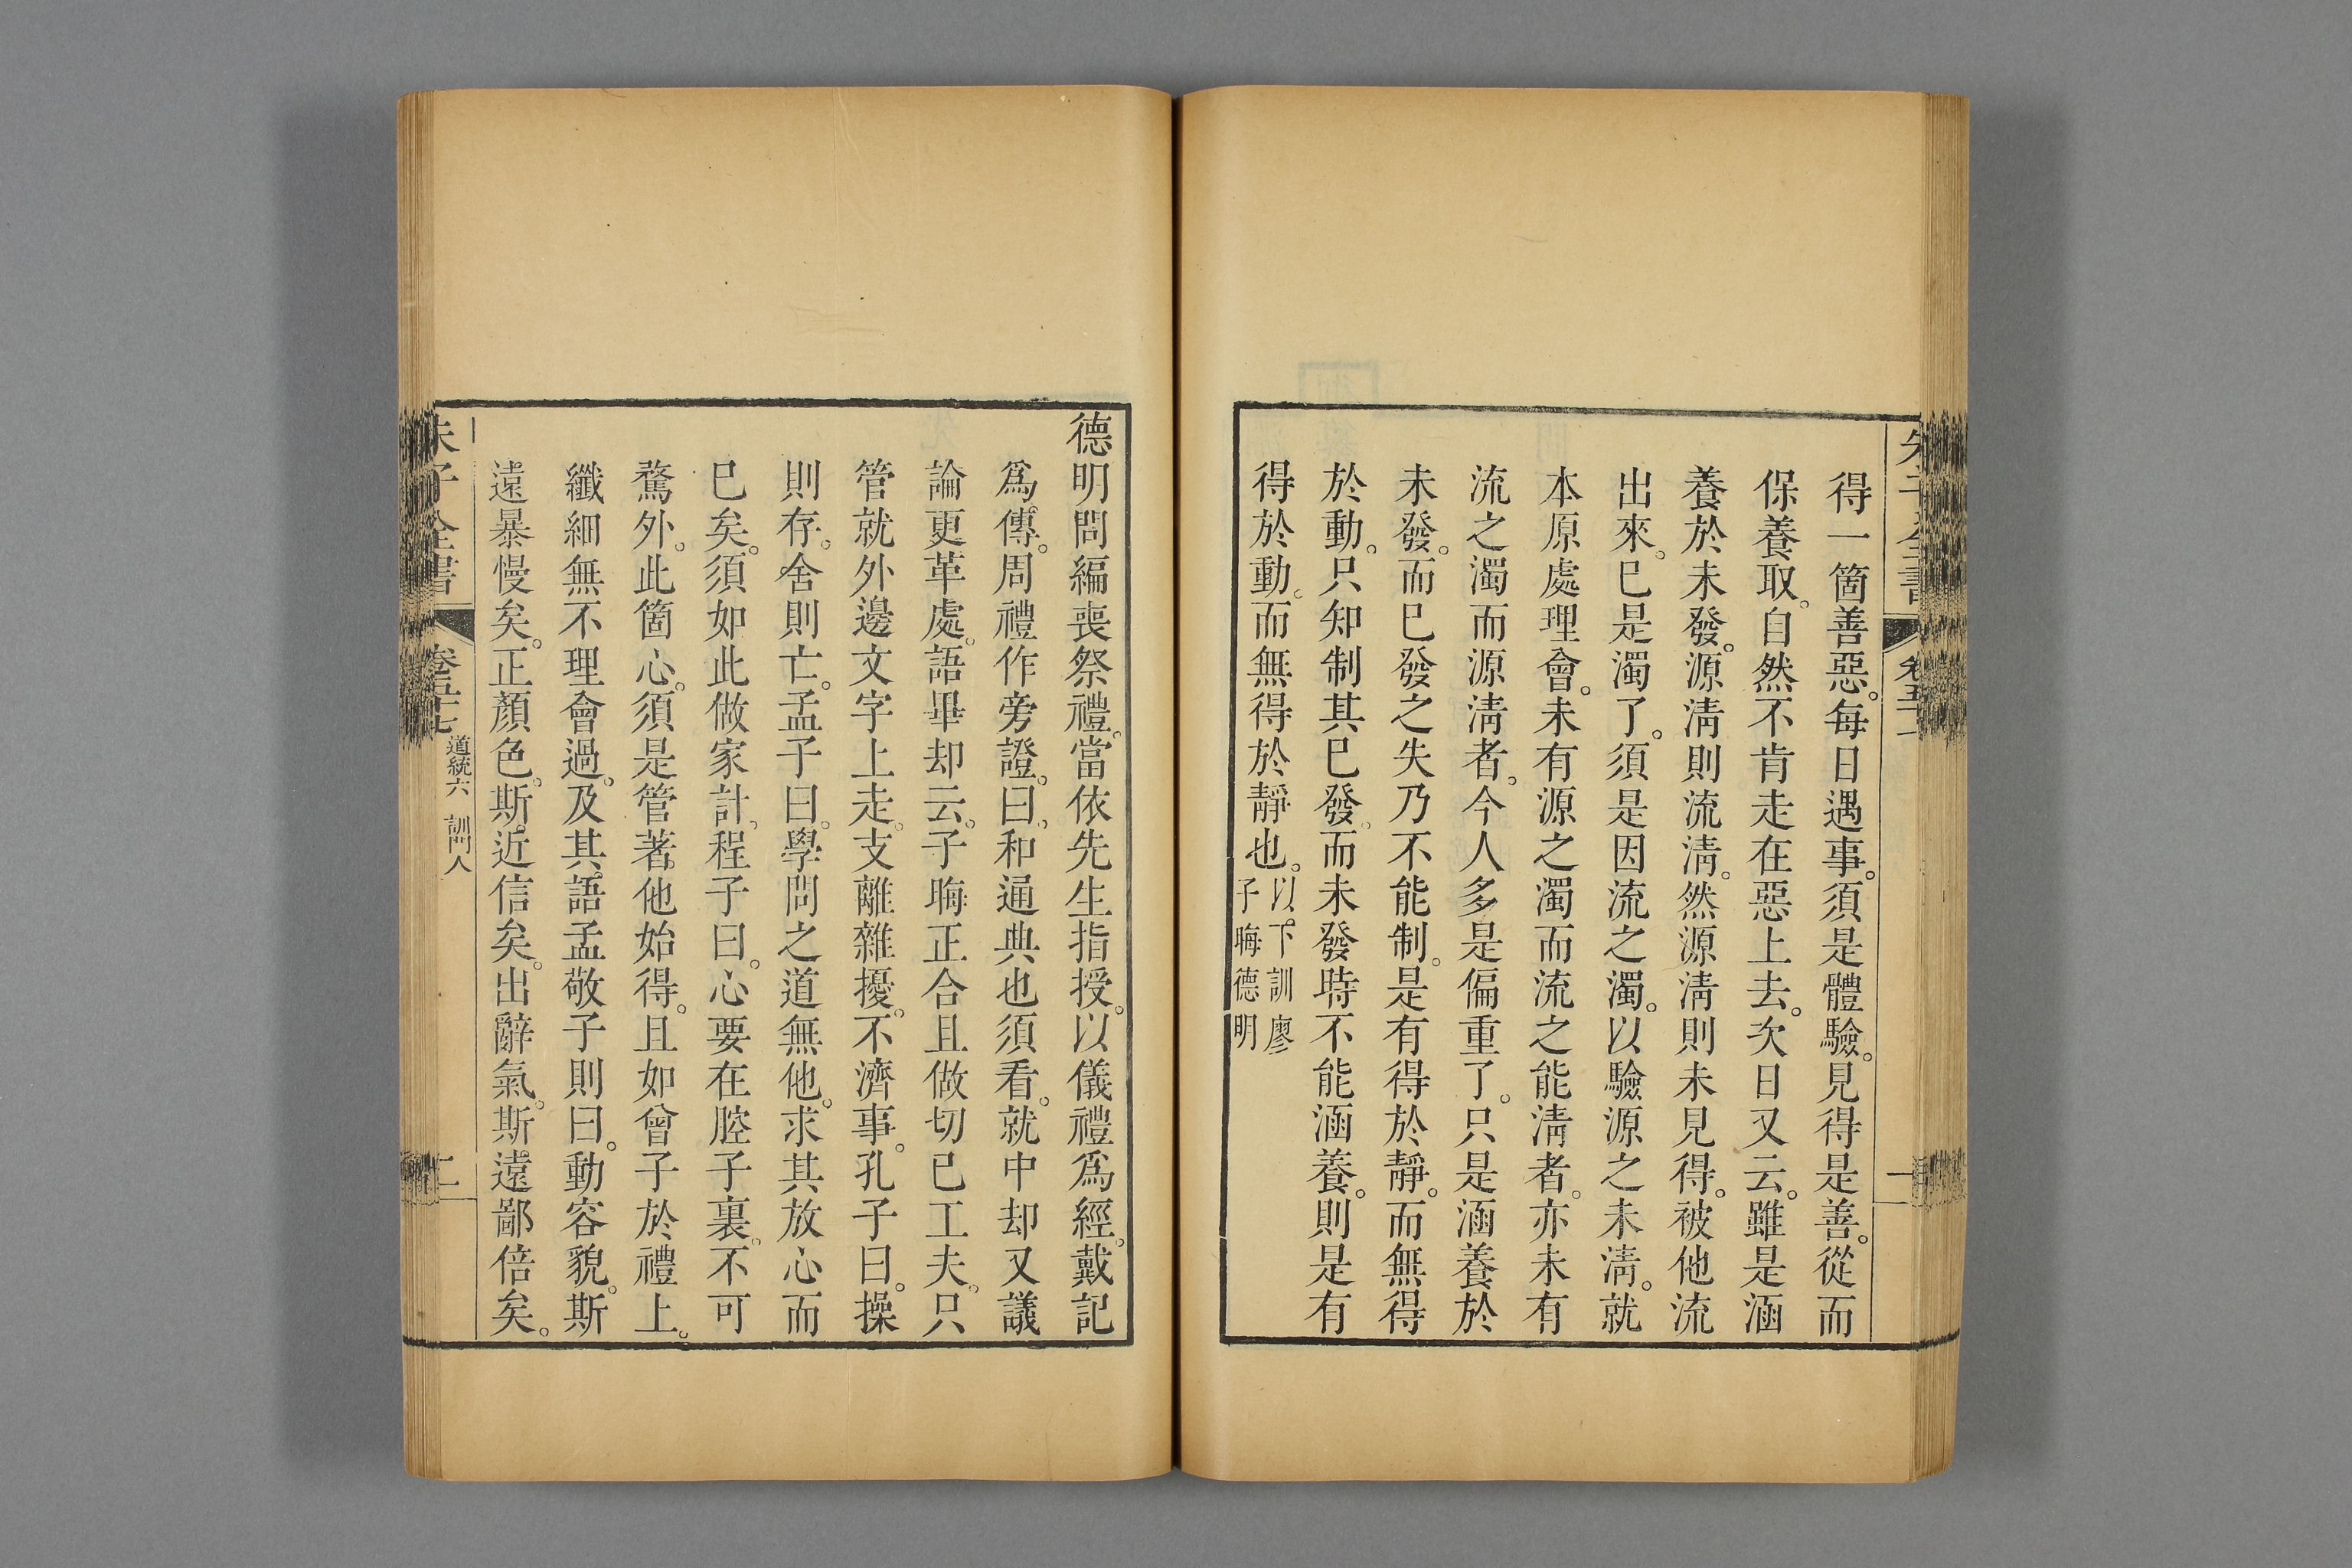 得一箇善惡。每日遇事。須是體驗。見得是善。從而
保養取。自然不肯走在惡上去。次日又云。雖是涵
養於未發。源淸則流淸。然源淸則未見得。被他流
出來。已是濁了。須是因流之濁。以驗源之未淸。就
本原處理會。未有源之濁而流之能淸者。亦未有
流之濁而源淸者。今人多是偏重了。只是涵養於
未發。而已發之失乃不能制。是有得於靜。而無得
於動。只知制其已發。而未發時不能涵養。則是有
得於動。而無得於靜也。以下訓廖
子晦德明
德明問編喪祭禮。當依先生指授。以儀禮爲經。戴記
爲傳。周禮作旁證。曰。和通典也須看。就中却又議
論更革處。語畢却云。子晦正合且做切已工夫。只
管就外邊文字上走。支離雜擾。不濟事。孔子曰。操
則存。舍則亡。孟子曰。學問之道無他。求其放心而
已矣。須如此做家計。程子曰。心要在腔子裏。不可
騖外。此箇心。須是管著。他始得。且如曾子於禮上。
纖細無不理會過。及其語孟敬子則曰。動容貌。斯
遠暴慢矣。正顏色。斯近信矣。出辭氣。斯遠鄙倍矣。
朱子全書
卷五十七
道統六 訓門人
二